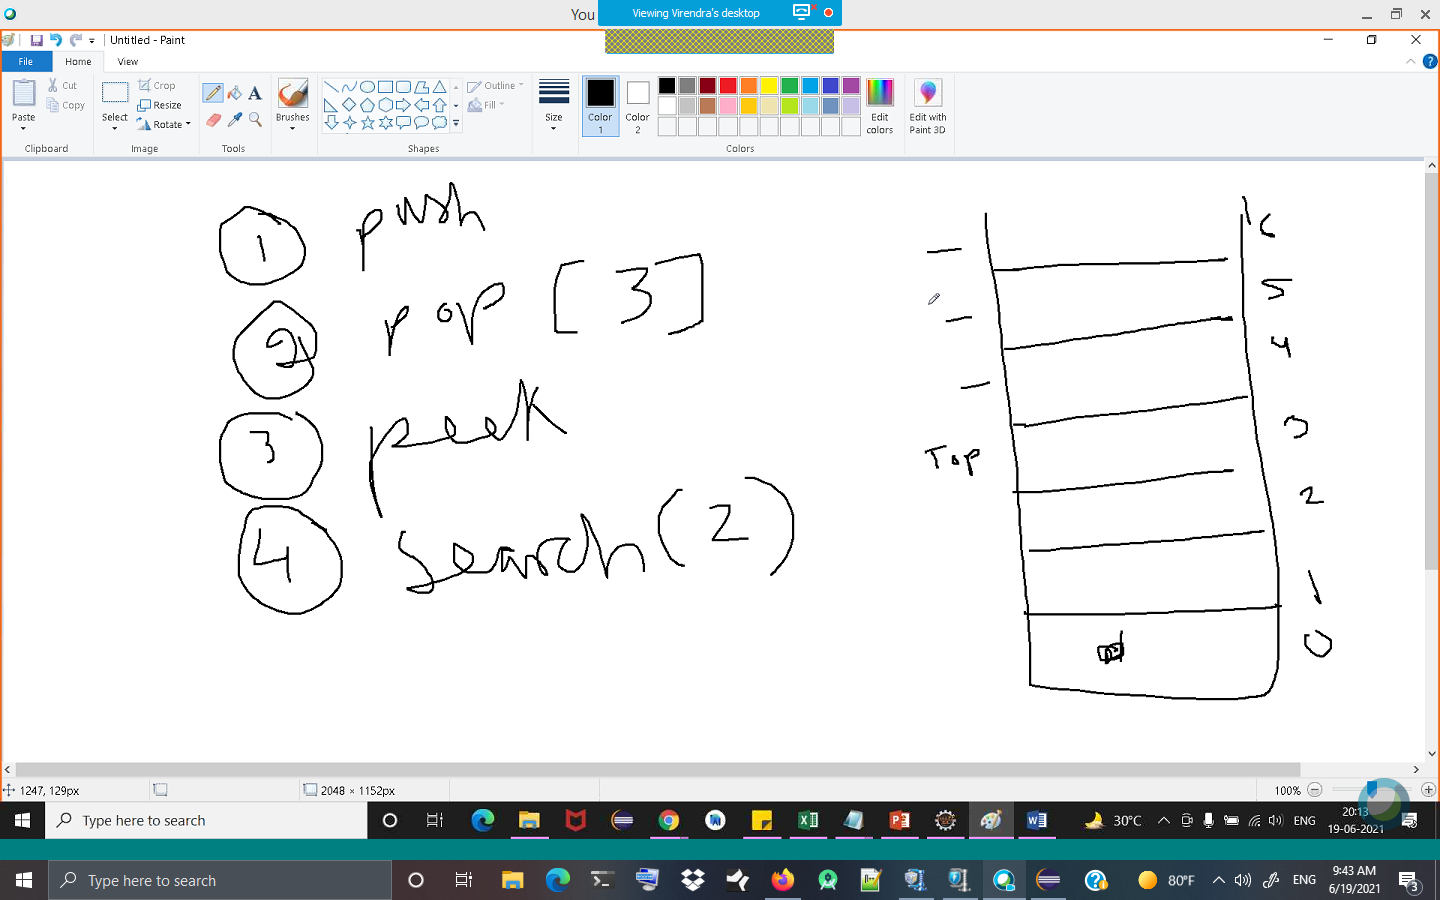 You
Viewing Virendra's desktop
Untitled - Paint
File Home View
Paste
Cut
Copy
Clipboard
Select
Crop
Resize
Rotate
Image
Tools
A
Brushes
Shapes
Outline
Fill
Size
Color 1
Color 2
Colors
Edit colors
Edit with Paint 3D
1 push
2 pop [3]
3 peek
4 search(2)
Top
6
5
4
3
2
1
0
1247, 129px
2048 × 1152px
100%
Type here to search
30°C
ENG
20:13
19-06-2021
Type here to search
80°F
ENG
9:43 AM
6/19/2021
3